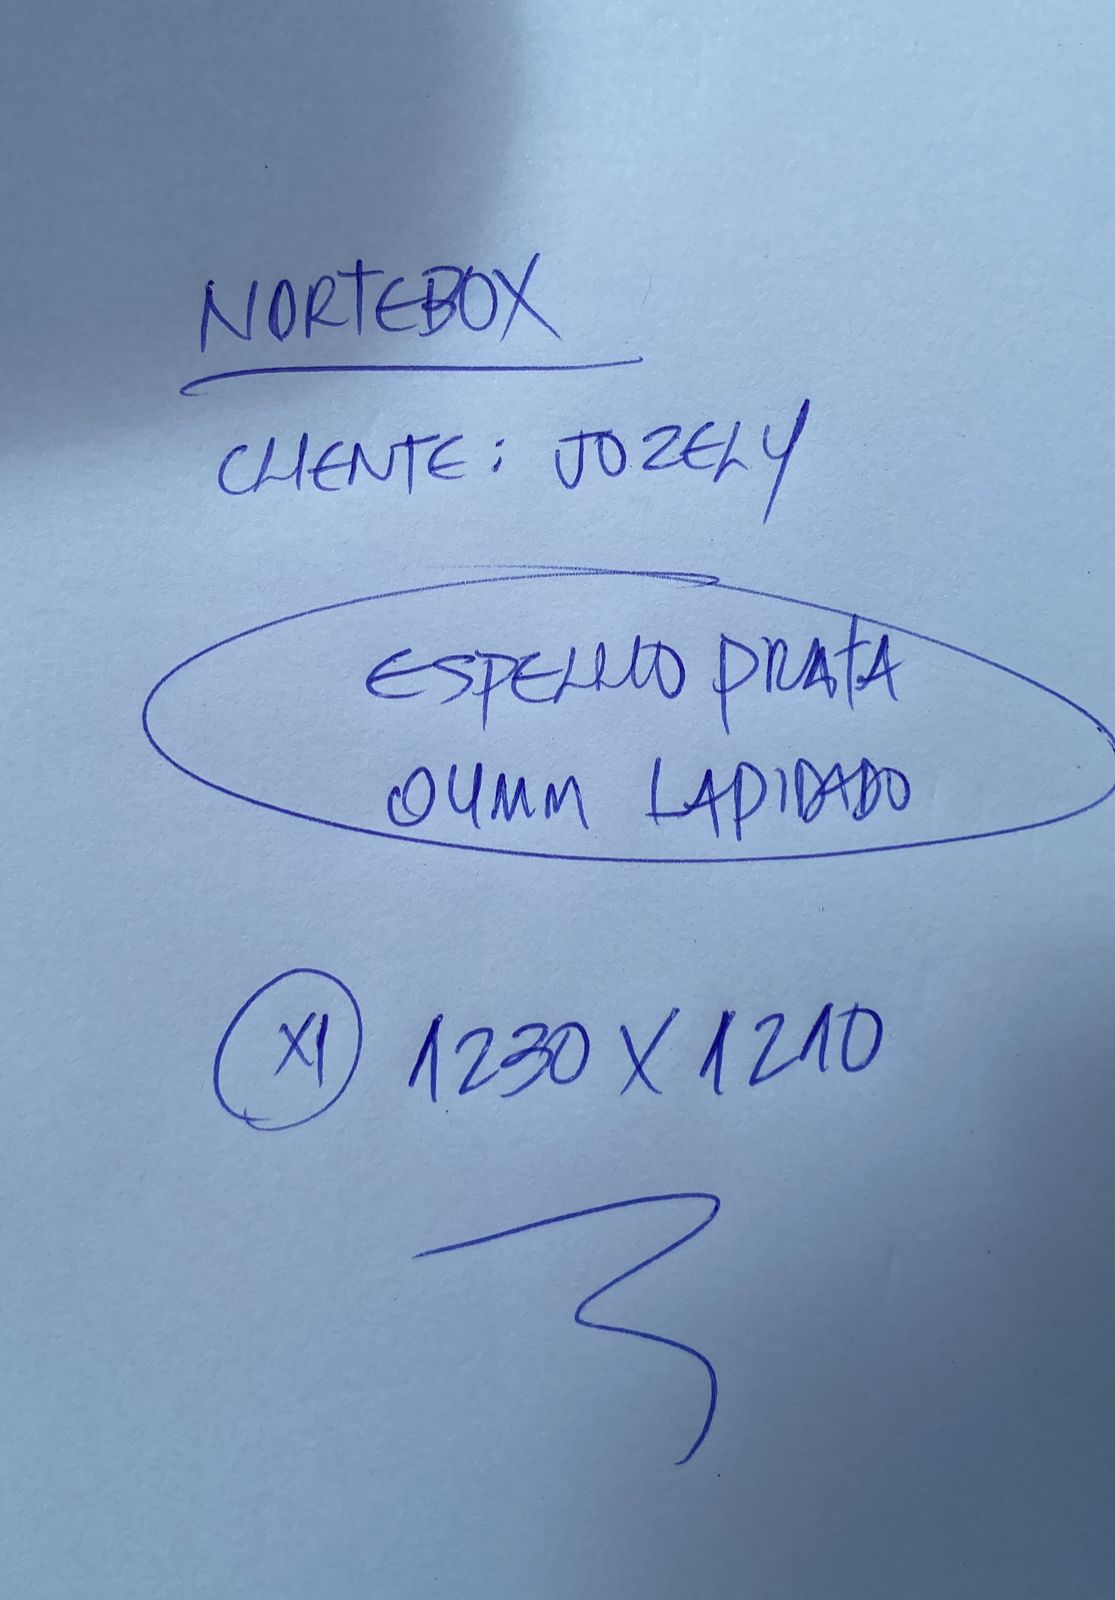 NORTEBOX
CLIENTE: JOZELY
ESPELHO PRATA
04MM LAPIDADO
X1 1230 X 1210